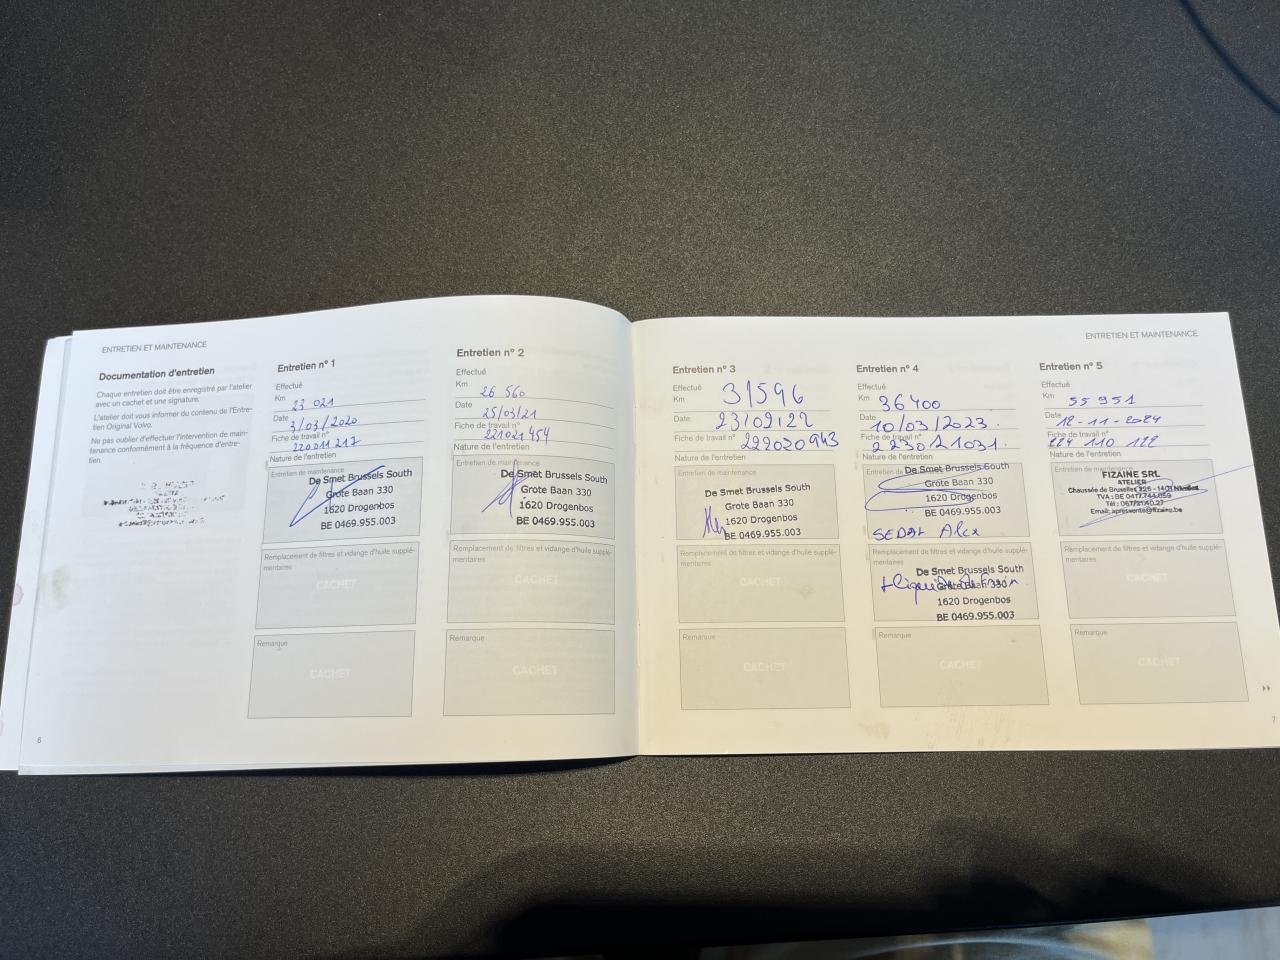 ENTRETIEN ET MAINTENANCE
Documentation d'entretien
Chaque entretien doit être enregistré par l'atelier
avec un cachet et une signature.
L'atelier doit vous informer du contenu de l'Entre-
tien Original Volvo.
Ne pas oublier d'effectuer l'intervention de main-
tenance conformément à la fréquence d'entre-
tien.
Entretien n° 1
Effectué
Km 23 021
Date 3/03/2020
Fiche de travail n° 220011217
Nature de l'entretien
Entretien de maintenance
De Smet Brussels South
Grote Baan 330
1620 Drogenbos
BE 0469.955.003
Remplacement de filtres et vidange d'huile supplé-
mentaires
CACHET
Remarque
CACHET
6
Entretien n° 2
Effectué
Km 26 560
Date 25/03/21
Fiche de travail n° 221021454
Nature de l'entretien
Entretien de maintenance
De Smet Brussels South
Grote Baan 330
1620 Drogenbos
BE 0469.955.003
Remplacement de filtres et vidange d'huile supplé-
mentaires
CACHET
Remarque
CACHET
ENTRETIEN ET MAINTENANCE
Entretien n° 3
Effectué
Km 31596
Date 23/02/22
Fiche de travail n° 222020943
Nature de l'entretien
Entretien de maintenance
De Smet Brussels South
Grote Baan 330
1620 Drogenbos
BE 0469.955.003
Remplacement de filtres et vidange d'huile supplé-
mentaires
CACHET
Remarque
CACHET
Entretien n° 4
Effectué
Km 36400
Date 10/03/2023.
Fiche de travail n° 223021031.
Nature de l'entretien
Entretien de
De Smet Brussels South
Grote Baan 330
1620 Drogenbos
BE 0469.955.003
Alex
Remplacement de filtres et vidange d'huile supplé-
mentaires
De Smet Brussels South
Grote Baan 330
+ liquide de frein.
1620 Drogenbos
BE 0469.955.003
Remarque
CACHET
Entretien n° 5
Effectué
Km 55 951
Date 12-11-2024
Fiche de travail n° 224 110 122
Nature de l'entretien
Entretien de maintenance
FIZAINE SRL
ATELIER
Chaussée de Bruxelles - 1401
TVA : BE
Tél :
Email: apresvente@fizaine.be
Remplacement de filtres et vidange d'huile supplé-
mentaires
CACHET
Remarque
CACHET
7